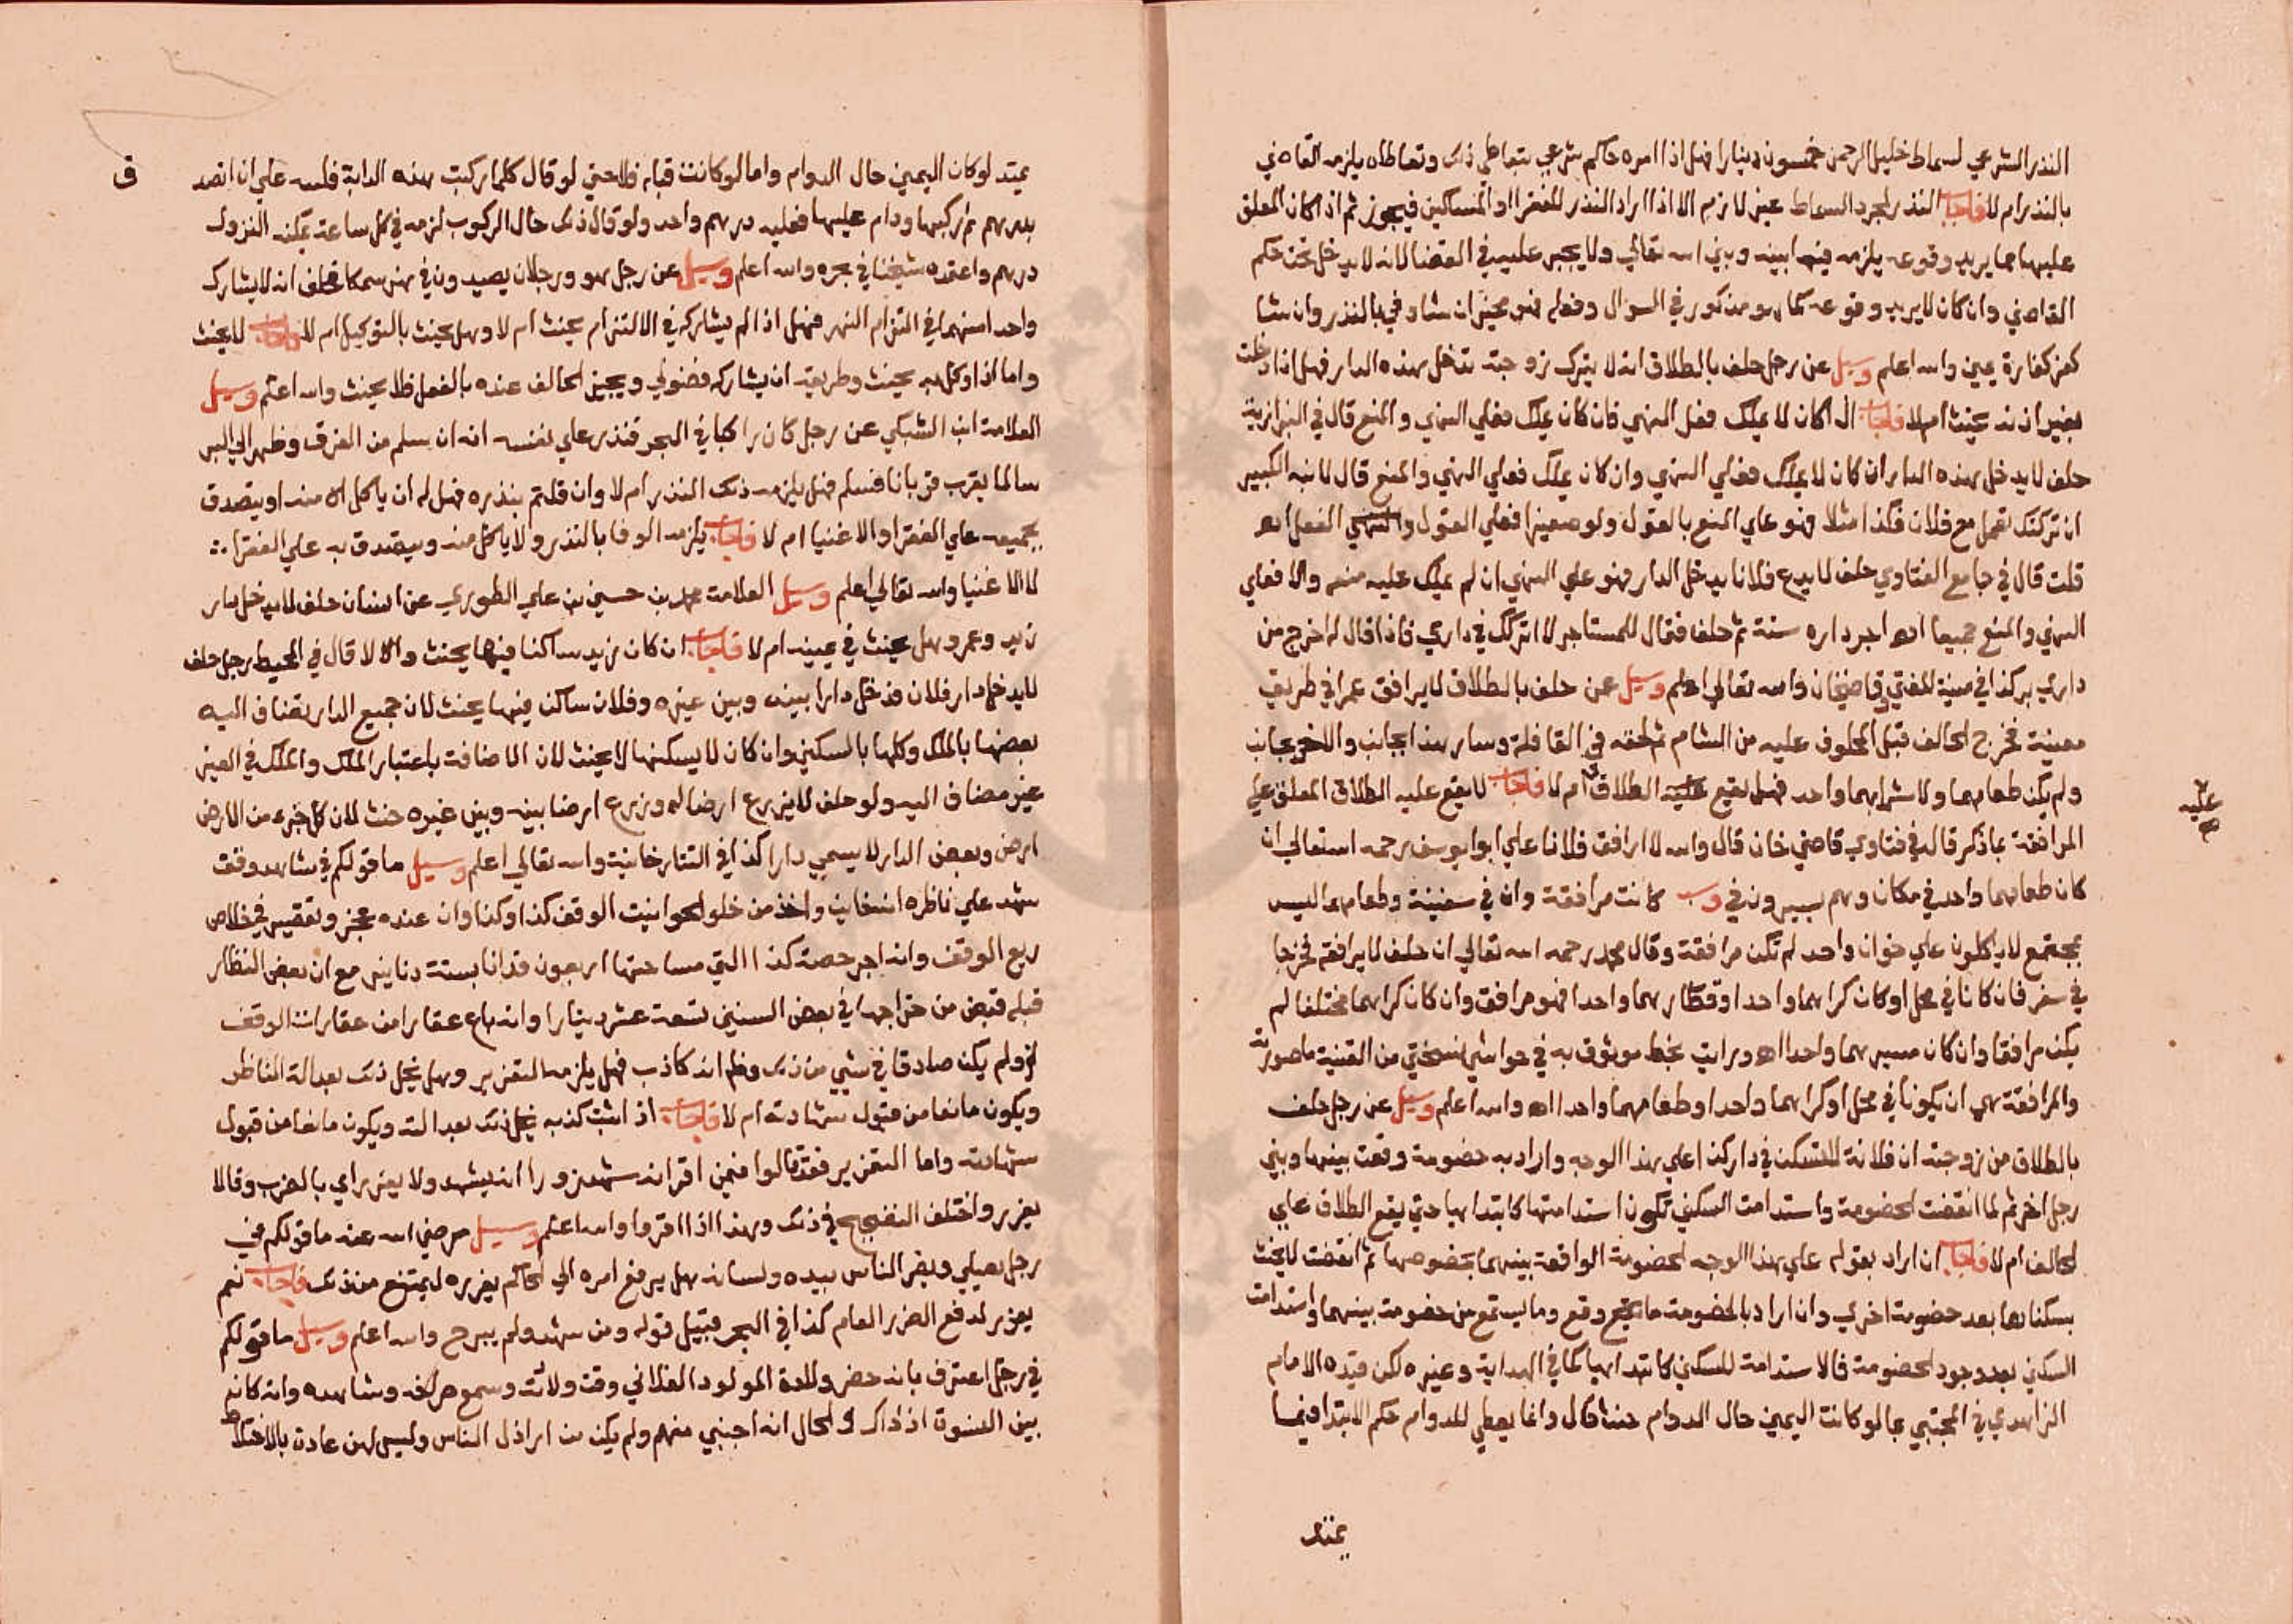 النذر الشرعي لسماط خليل الرحمن خمسون دينارا فهل اذا امره حاكم شرعي بتعاطي ذلك وتعاطاه يلزمه القاضي
بالنذر ام لا فاجاب النذر لمجرد السماط غير لازم الا اذا اراد النذر للفقرا او المساكين فيجوز ثم اذا كان المعلق
عليها مما يريد وقوعه يلزمه فيما بينه وبين الله تعالي ولا يجبر عليه في القضا لانه لا يدخل تحت حكم
القاضي وان كان لا يريد وقوعه كما هو مذكور في السوال وفعله فهو مخير ان شا وفي بالنذر وان شا
كفر كفارة يمين والله اعلم وسيل عن رجل حلف بالطلاق انه لا يترك زوجته تدخل هذه الدار فهل اذا دخلت
بغير اذنه يحنث ام لا فاجاب ان كان لا يملك فعل النهي فان كان يملك فعلي النهي والمنع قال في البزازية
حلف لا يدخل هذه الدار ان كان لا يملك فعلي النهي وان كان يملك فعلي النهي والمنع قال لابنه الكبير
ان تركتك تعمل مع فلان فكذا مثلا فهو علي المنع بالقول ولو صغيرا فعلي القول والنهي الفعل اهـ
قلت قال في جامع الفتاوي حلف لا يدع فلانا يدخل الدار فهو علي النهي ان لم يملك عليه منه والا فعلي
النهي والمنع جميعا اهـ اجر داره سنة ثم حلف فقال للمستاجر لا اتركك في داري فاذا قال له اخرج من
داري بر كذا في منية المفتي وقاضيخان والله تعالي اعلم وسيل عمن حلف بالطلاق لا يرافق عمرا في طريق
معينة فخرج الحالف قبل المحلوف عليه من الشام ثم لحقه في القافلة وسار هذا بجانب والاخر بجانب
ولم يكن طعامهما ولا شرابهما واحد فهل يقع عليه الطلاق ام لا فاجاب لا يقع عليه الطلاق المعلق علي
عليه
المرافقة بما ذكر قال في فتاوي قاضي خان قال والله لا ارافق فلانا علي ابو يوسف رحمه الله تعالي ان
كان طعامهما واحد في مكان وهم يسيرون في كانت مرافقة وان في سفينة وطعامهما ليس
بمجتمع لا ياكلون علي خوان واحد لم تكن مرافقة وقال محمد رحمه الله تعالي ان حلف لا يرافقه فخرجا
في سفر فان كانا في محمل او كان كراهما واحد او قطارهما واحدا فهو مرافق وان كان كراهما مختلفا لم
يكن مرافقا وان كان مسيرهما واحدا اهـ ورايت بخط موثوق به في حواشي نسختي من القنية ما صورته
والمرافقة هي ان يكونا في محمل او كراهما واحدا وطعامهما واحدا اهـ والله اعلم وسيل عن رجل حلف
بالطلاق من زوجته ان فلانة لا تسكن في دار كذا علي هذا الوجه واراد به خصومة وقعت بينها وبين
رجل اخر ثم لما انقضت الخصومة واستدامت السكني تكون استدامتها كابتدايها حتي يقع الطلاق علي
الحالف ام لا فاجاب ان اراد بقوله علي هذا الوجه الخصومة الواقعة بينهما بخصوصها ثم انقضت لا يحنث
بسكناها بعد خصومة اخري وان اراد بالخصومة ما يقع وقع وما يستمع من خصومة بينهما واستدامت
السكني بعد وجود الخصومة فالاستدامة للسكني كابتدايها كما في الهداية وغيره لكن قيده الامام
الزاهدي في المجتبي بما لو كانت اليمين حال الدوام حيث قال وانما يعطي للدوام حكم الابتدا فيما
يمتد
ق
يمتد لو كان اليمين حال الدوام واما لو كانت قبله فلا حتي لو قال كلما ركبت هذه الدابة فلله علي ان اتصد
بدرهم ثم ركبها ودام عليها فعليه درهم واحد ولو قال ذلك حال الركوب لزمه في كل ساعة يمكنه النزول
درهم واعتمده شيخنا في بحره والله اعلم وسيل عن رجل هو ورجلان يصيدون في نهر سمكا فحلف انه لا يشارك
واحدا منهما في التزام النهر فهل اذا لم يشاركه في الالتزام يحنث ام لا وهل يحنث بالتوكيل ام لا فاجاب لا يحنث
واما اذا وكل به يحنث وطريقه ان يشاركه فضولي ويجيز الحالف عنده بالفعل فلا يحنث والله اعلم وسيل
العلامة ابن الشبكي عن رجل كان راكبا في البحر فنذر علي نفسه انه ان سلم من الغرق وظهر الي البر
سالما يقرب قربانا فسلم فهل يلزمه ذلك النذر ام لا وان قلتم بنذره فهل له ان ياكل منه او يتصدق
بجميعه علي الفقرا والاغنيا ام لا فاجاب يلزمه الوفا بالنذر ولا ياكل منه ويتصدق به علي الفقرا
لا الاغنيا والله تعالي اعلم وسيل العلامة محمد بن حسين بن علي الطوري عن انسان حلف لا يدخل دار
زيد وعمرو هل يحنث في يمينه ام لا فاجاب ان كان زيد ساكنا فيها يحنث والا لا قال في المحيط رجل حلف
لا يدخل دار فلان فدخل دارا بينه وبين غيره وفلان ساكن فيها يحنث لان جميع الدار يضاف اليه
بعضها بالملك وكلها بالسكني وان كان لا يسكنها لا يحنث لان الاضافة باعتبار الملك والملك في الغير
غير مضاف اليه ولو حلف لا يزرع ارضا له وزرع ارضا بينه وبين غيره حنث لان كل جزء من الارض
ارض وبعض الدار لا يسمي دارا كذا في التتارخانية والله تعالي اعلم وسيل ما قولكم في شاهد وقف
شهد علي ناظره انه خاين واخذ من خلو الحوانيت الوقف كذا وكذا وان عنده عجز وتقصير في خلاص
ريع الوقف وانه اجر حصة كذا التي مساحتها اربعون فدانا بستة دنانير مع ان بعض النظار
قبله قبض من خراجها في بعض السنين تسعة عشر دينارا وانه باع عقارا من عقارات الوقف
لو ولم يكن صادقا في شيي من ذلك وظهر انه كاذب فهل يلزمه التعزير وهل يخل ذلك بعدالة الناظر
ويكون مانعا من قبول شهادته ام لا فاجاب اذا ثبت كذبه يخل ذلك بعدالته ويكون مانعا من قبول
شهادته واما التعزير فقد قالوا فيمن اقر انه شهد زورا انه يشهد ولا يعزر اي بالضرب وقالا
يعزر واختلف التصحيح في ذلك وهذا اذا اقر واما والله اعلم وسيل رضي الله عنه ما قولكم في
رجل يصلي ويضر الناس بيده ولسانه هل يرفع امره الي الحاكم يعزره ليمتنع من ذلك فاجاب نعم
يعزر لدفع الضرر العام كذا في البحر قبيل قوله ومن شهد ولم يبرح والله اعلم وسيل ما قولكم
في رجل اعترف بانه حضر وللدة المولود الفلاني وقت ولادته وسمع صراخه وشاهده وانه كان
بين النسوة اذ ذاك والحال انه اجنبي منهم ولم يكن من اراذل الناس وليس لهن عادة بالاختلاط